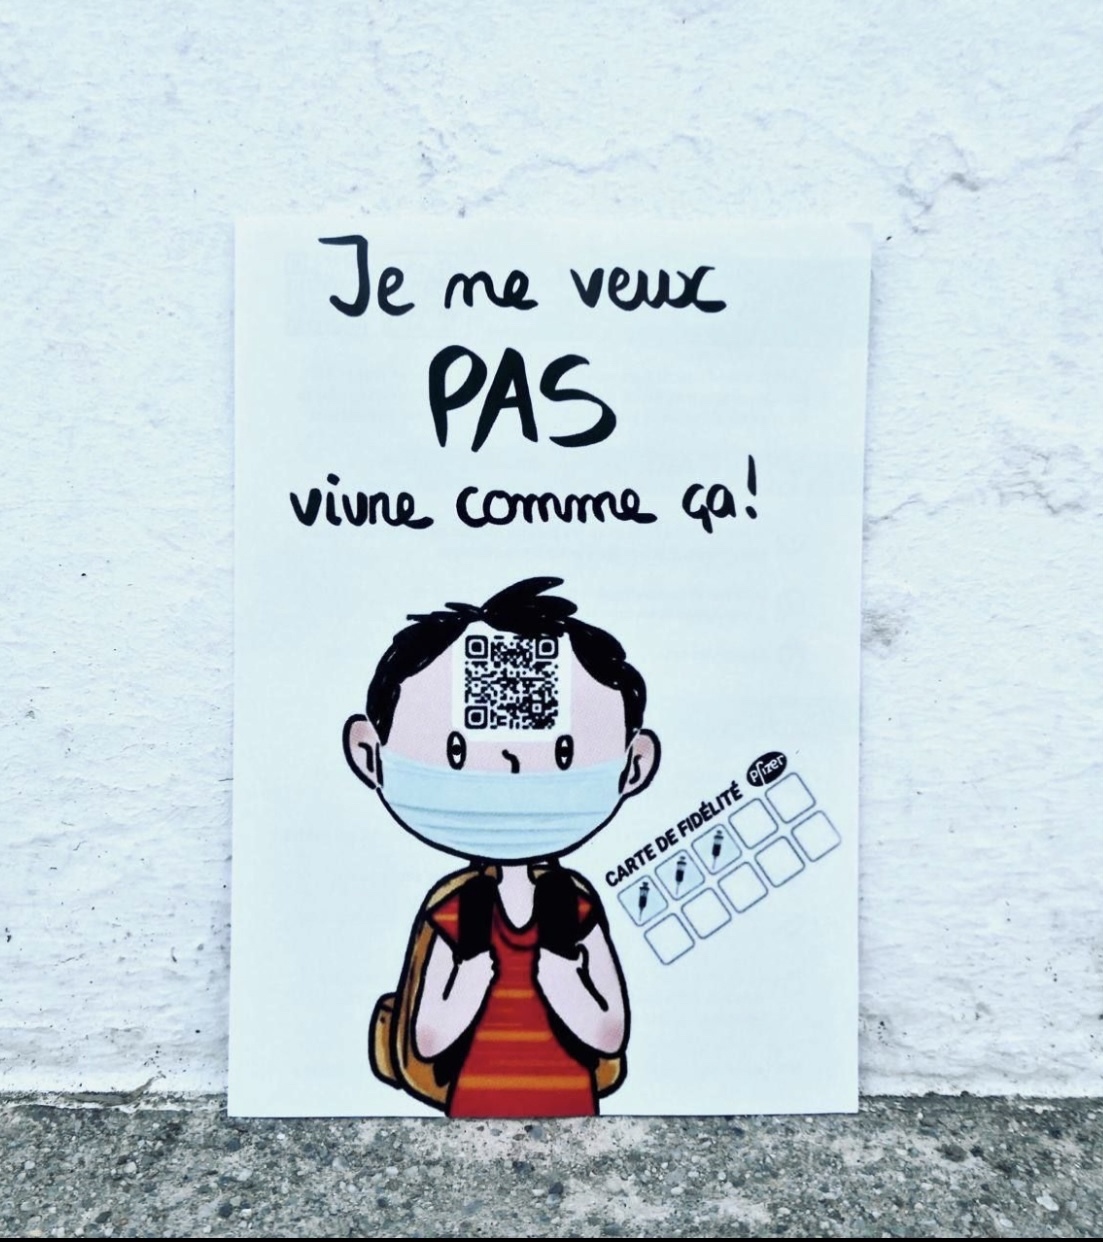 Je ne veux
PAS
vivre comme ça!
CARTE DE FIDÉLITÉ Pfizer